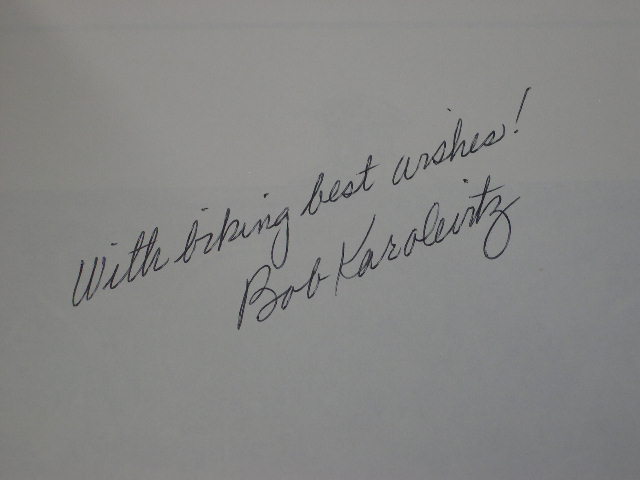 With biking best wishes!
Bob Karolevitz